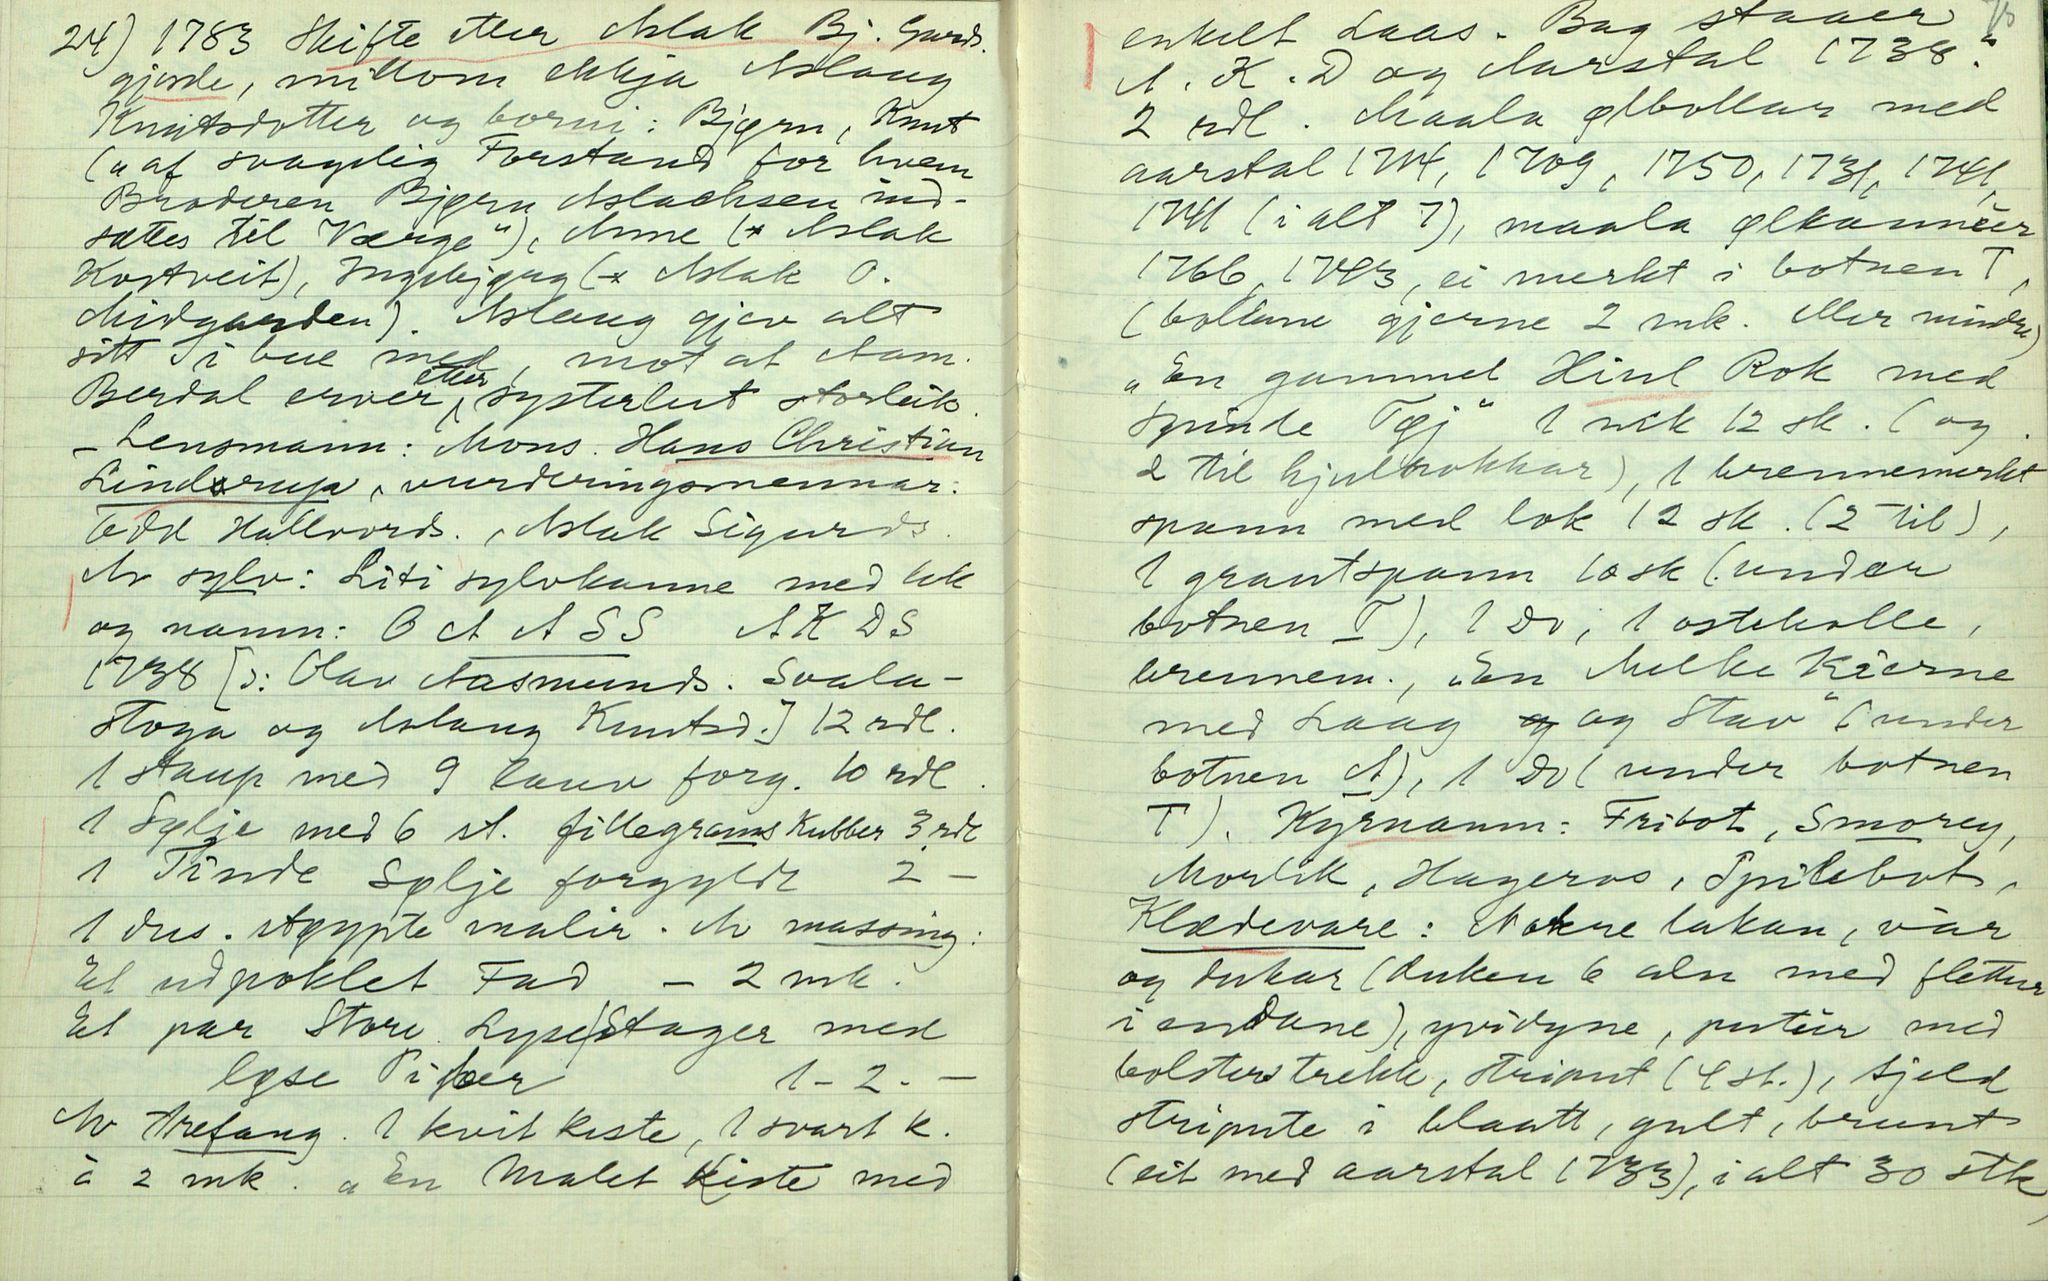 24) 1783 Skifte etter Aslak Bj. Gards-
gjerde, millom ekkja Aslaug
Knutsdotter og borni: Bjørn, Knut
(„af svagelig Forstand for hvem
Broderen Bjørn Aslachsen ind-
sættes til Værge"), Anne (x Aslak
Kostveit), Ingebjørg (x Aslak O.
Midgarden). Aslaug gjev alt
sitt i bue med, mot at Aam.
Berdal erver etter systerlut storleik.
- Lensmann: Mons. Hans Christian
Linderup, vurderingsmennar:
Odd Hallvords., Aslak Sigurds.
Av sylv: Liti sylvkanne med lok
og namn: O A A S S   A K D S
1738 [ɔ: Olav Aasmunds. Svala-
stoga og Aslaug Knutsd.] 12 rdl.
1 staup med 9 lauv forg. 10 rdl.
1 Sølje med 6 st. fillegrams Kubber 3 rdl
1 Tinde Sølje forgyldt 2 -
1 dus. støypte malir. Av massing:
Et udpoklet Fad - 2 mk.
Et par Store Lyse Stager med
lyse Piber 1 - 2. -
Av trefang. 1 kvit kiste, 1 svart k.
à 2 mk. „En Malet Kiste med
enkelt Laas. Bag staaer
A. K. D og Aarstal 1738."
2 rdl. Maala ølbollar med
aarstal 1714, 1709, 1750, 1731, 1741,
1741 (i alt 7), maala ølkanneer
1766, 1743, ei merkt i botnen T,
(bollane gjerne 2 mk. eller mindre)
„En gammel Hiul Rok med
Spinde Tøj" 1 mk 12 sk. (og
2 til hjulrokkar), 1 brennemerkt
spann med lok 12 sk. (2 til),
1 grautspann 10 sk (under
botnen T), 1 Do, 1 ostekolle,
brennem., „En Melke Kierne
med Laag og Stav" (under
botnen A), 1 Do (under botnen
T). Kyrnamn: Fribot, Smorey,
Morlik, Hageros, Spilebot,
Klædevare: Nokre lakan, vār
og dukar (duken 6 aln med flettur
i endane), yvidyne, putur med
bolsters trekk, striput (4 st.), Åjeld
stripute i blaatt, gult, brunt
(eit med aarstal 1733), i alt 30 stk,